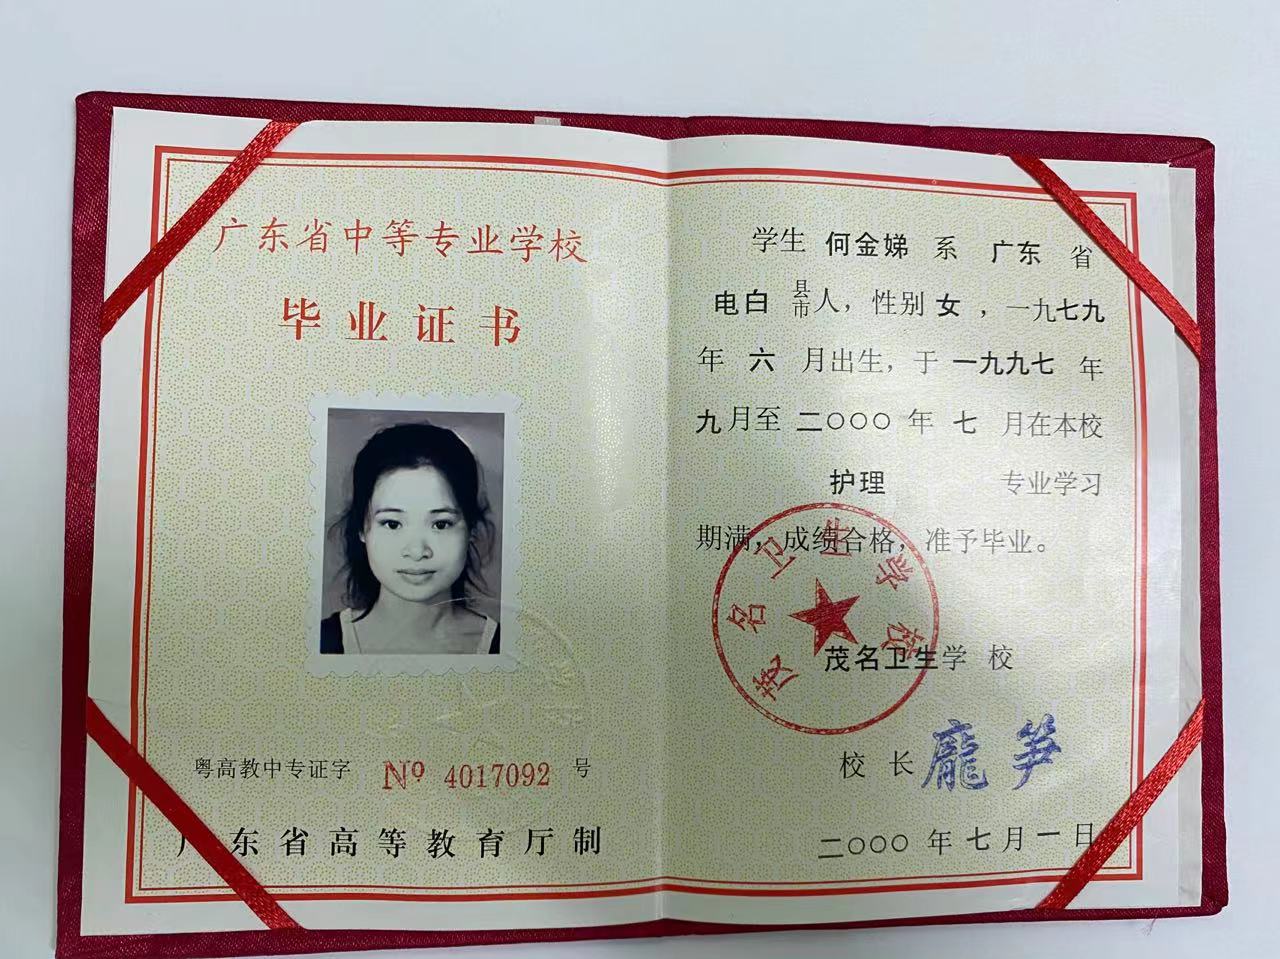 广东省中等专业学校
毕业证书
粤高教中专证字 Nº 4017092 号
广东省高等教育厅制
学生 何金娣 系 广东 省
电白 县市人，性别 女，一九七九
年 六 月出生，于 一九九七 年
九月至 二〇〇〇 年 七 月在本校
护理 专业学习
期满，成绩合格，准予毕业。
茂名卫生学校
茂名卫生学 校
校 长 龐笋
二〇〇〇年七月一日